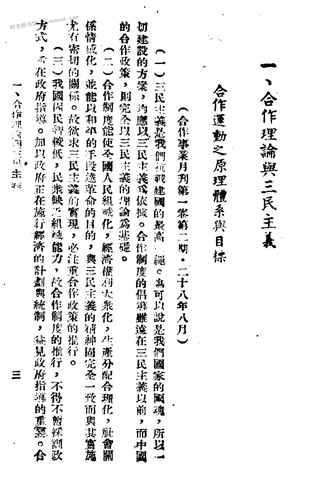 一、合作理論與三民主義
合作運動之原理體系與目標
（合作事業月刊第一第二期・二十八年八月）
（一）三民主義是我們抗戰建國的最高　繩。也可以說是我們國家的國魂，所以一
切建設的方案，均應以三民主義爲依據。合作制度的倡導雖遠在三民主義以前，而中國
的合作政策，則完全以三民主義的理論爲基礎。
（二）合作制度能使全國人民組織化，經濟權利大衆化，生產分配合理化，社會關
係情感化，並能以和平的手段達革命的目的，與三民主義的精神固完全一致而與其實施
尤有密切的關係。故欲求三民主義的實現，必注重合作政策的推行。
（三）我國國民智較低，民衆缺乏組織能力，故合作制度的推行，不得不暫採制政
方式，　在政府指導。加以政府正在施行經濟的計劃與統制，益見政府指導的重要。合
一、合作理論與三民主義
三